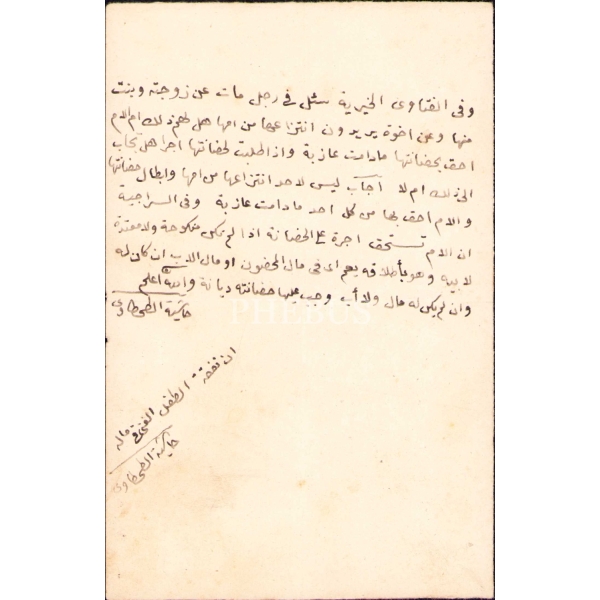 وفى الفتاوى الخيرية سئل فى رجل مات عن زوجته وبنت
منها وعن اخوة يريدون انتزاعها من امها هل لهم ذلك ام الام
احق بحضانتها مادامت عازبة واذا طلبت لحضانتها اجرا هل تجاب
الى ذلك ام لا اجاب ليس لاحد انتزاعها من امها وابطال حضانتها
والام احق بها من كل احد مادامت عازبة وفى السراجية
ان الام تستحق اجرة على الحضانة اذا لم تكن منكوحة ولا معتدة
لابيه وهو باطلاقه يعم اى فى مال المحضون او مال الاب ان كان له
وان لم يكن له مال ولا أب وجب عليها حضانته ديانة والله أعلم
حاشية الطحطاوى
ان نفقة الطفل الغنى فى ماله
حاشية الطحطاوى
PHEBUS